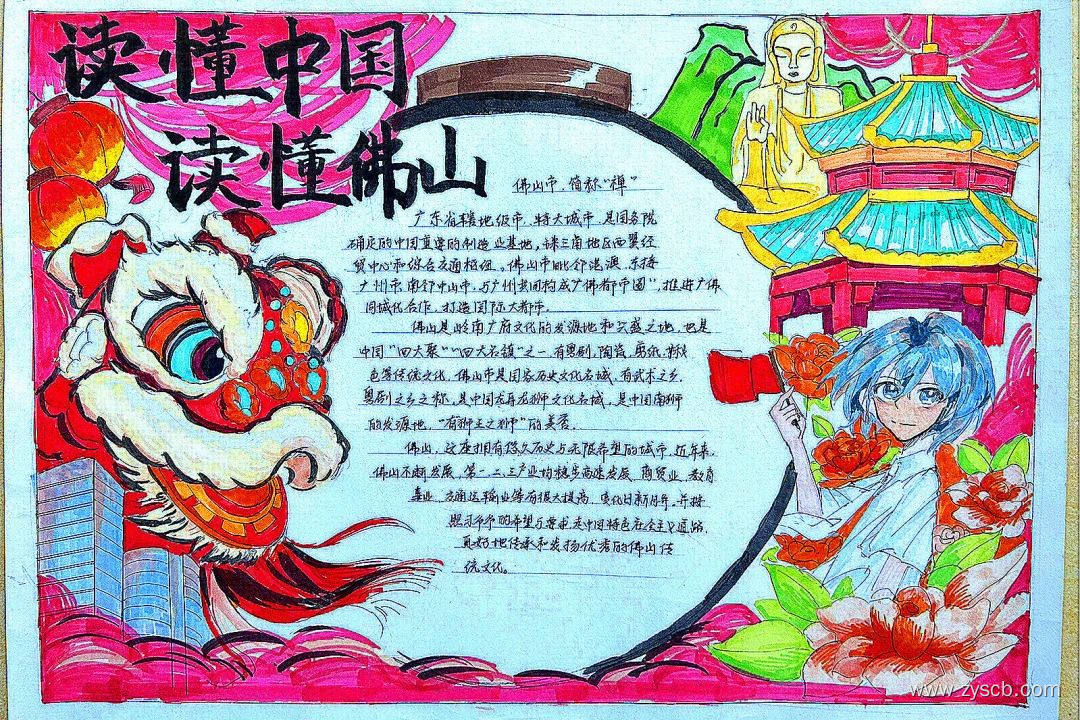 读懂中国
读懂佛山
佛山市，简称“禅”
广东省辖地级市、特大城市、是国务院
确定的中国重要的制造业基地，珠三角地区西翼经
贸中心和综合交通枢纽。佛山市毗邻港澳，东接
广州市，南邻中山市，与广州共同构成“广佛都市圈”，推进广佛
同城化合作，打造国际大都市。
佛山是岭南广府文化的发源地和兴盛之地，也是
中国“四大聚”“四大名镇”之一，有粤剧、陶瓷、剪纸、秋
色等传统文化。佛山市是国家历史文化名城，有武术之乡、
粤剧之乡之称。是中国龙舟龙狮文化名城，是中国南狮
的发源地，“有狮王之狮”的美誉。
佛山，这座拥有悠久历史与无限希望的城市，近年来，
佛山不断发展，第一、二、三产业均稳步高速发展，商贸业、教育
事业、交通运输业等有很大提高，变化日新月异，并按
照习爷爷的希望与要求，走中国特色社会主义道路，
更好地传承和发扬优秀的佛山传
统文化。
www.zyscb.com